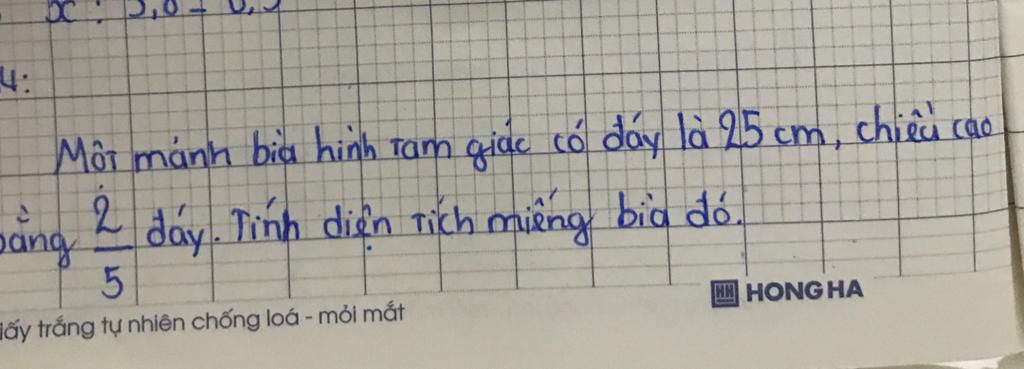 x : 3,6 =
4:
Một mảnh bìa hình tam giác có đáy là 25 cm, chiều cao
bằng 2/5 đáy. Tính diện tích miếng bìa đó.
HONG HA
iấy trắng tự nhiên chống loá - mỏi mắt